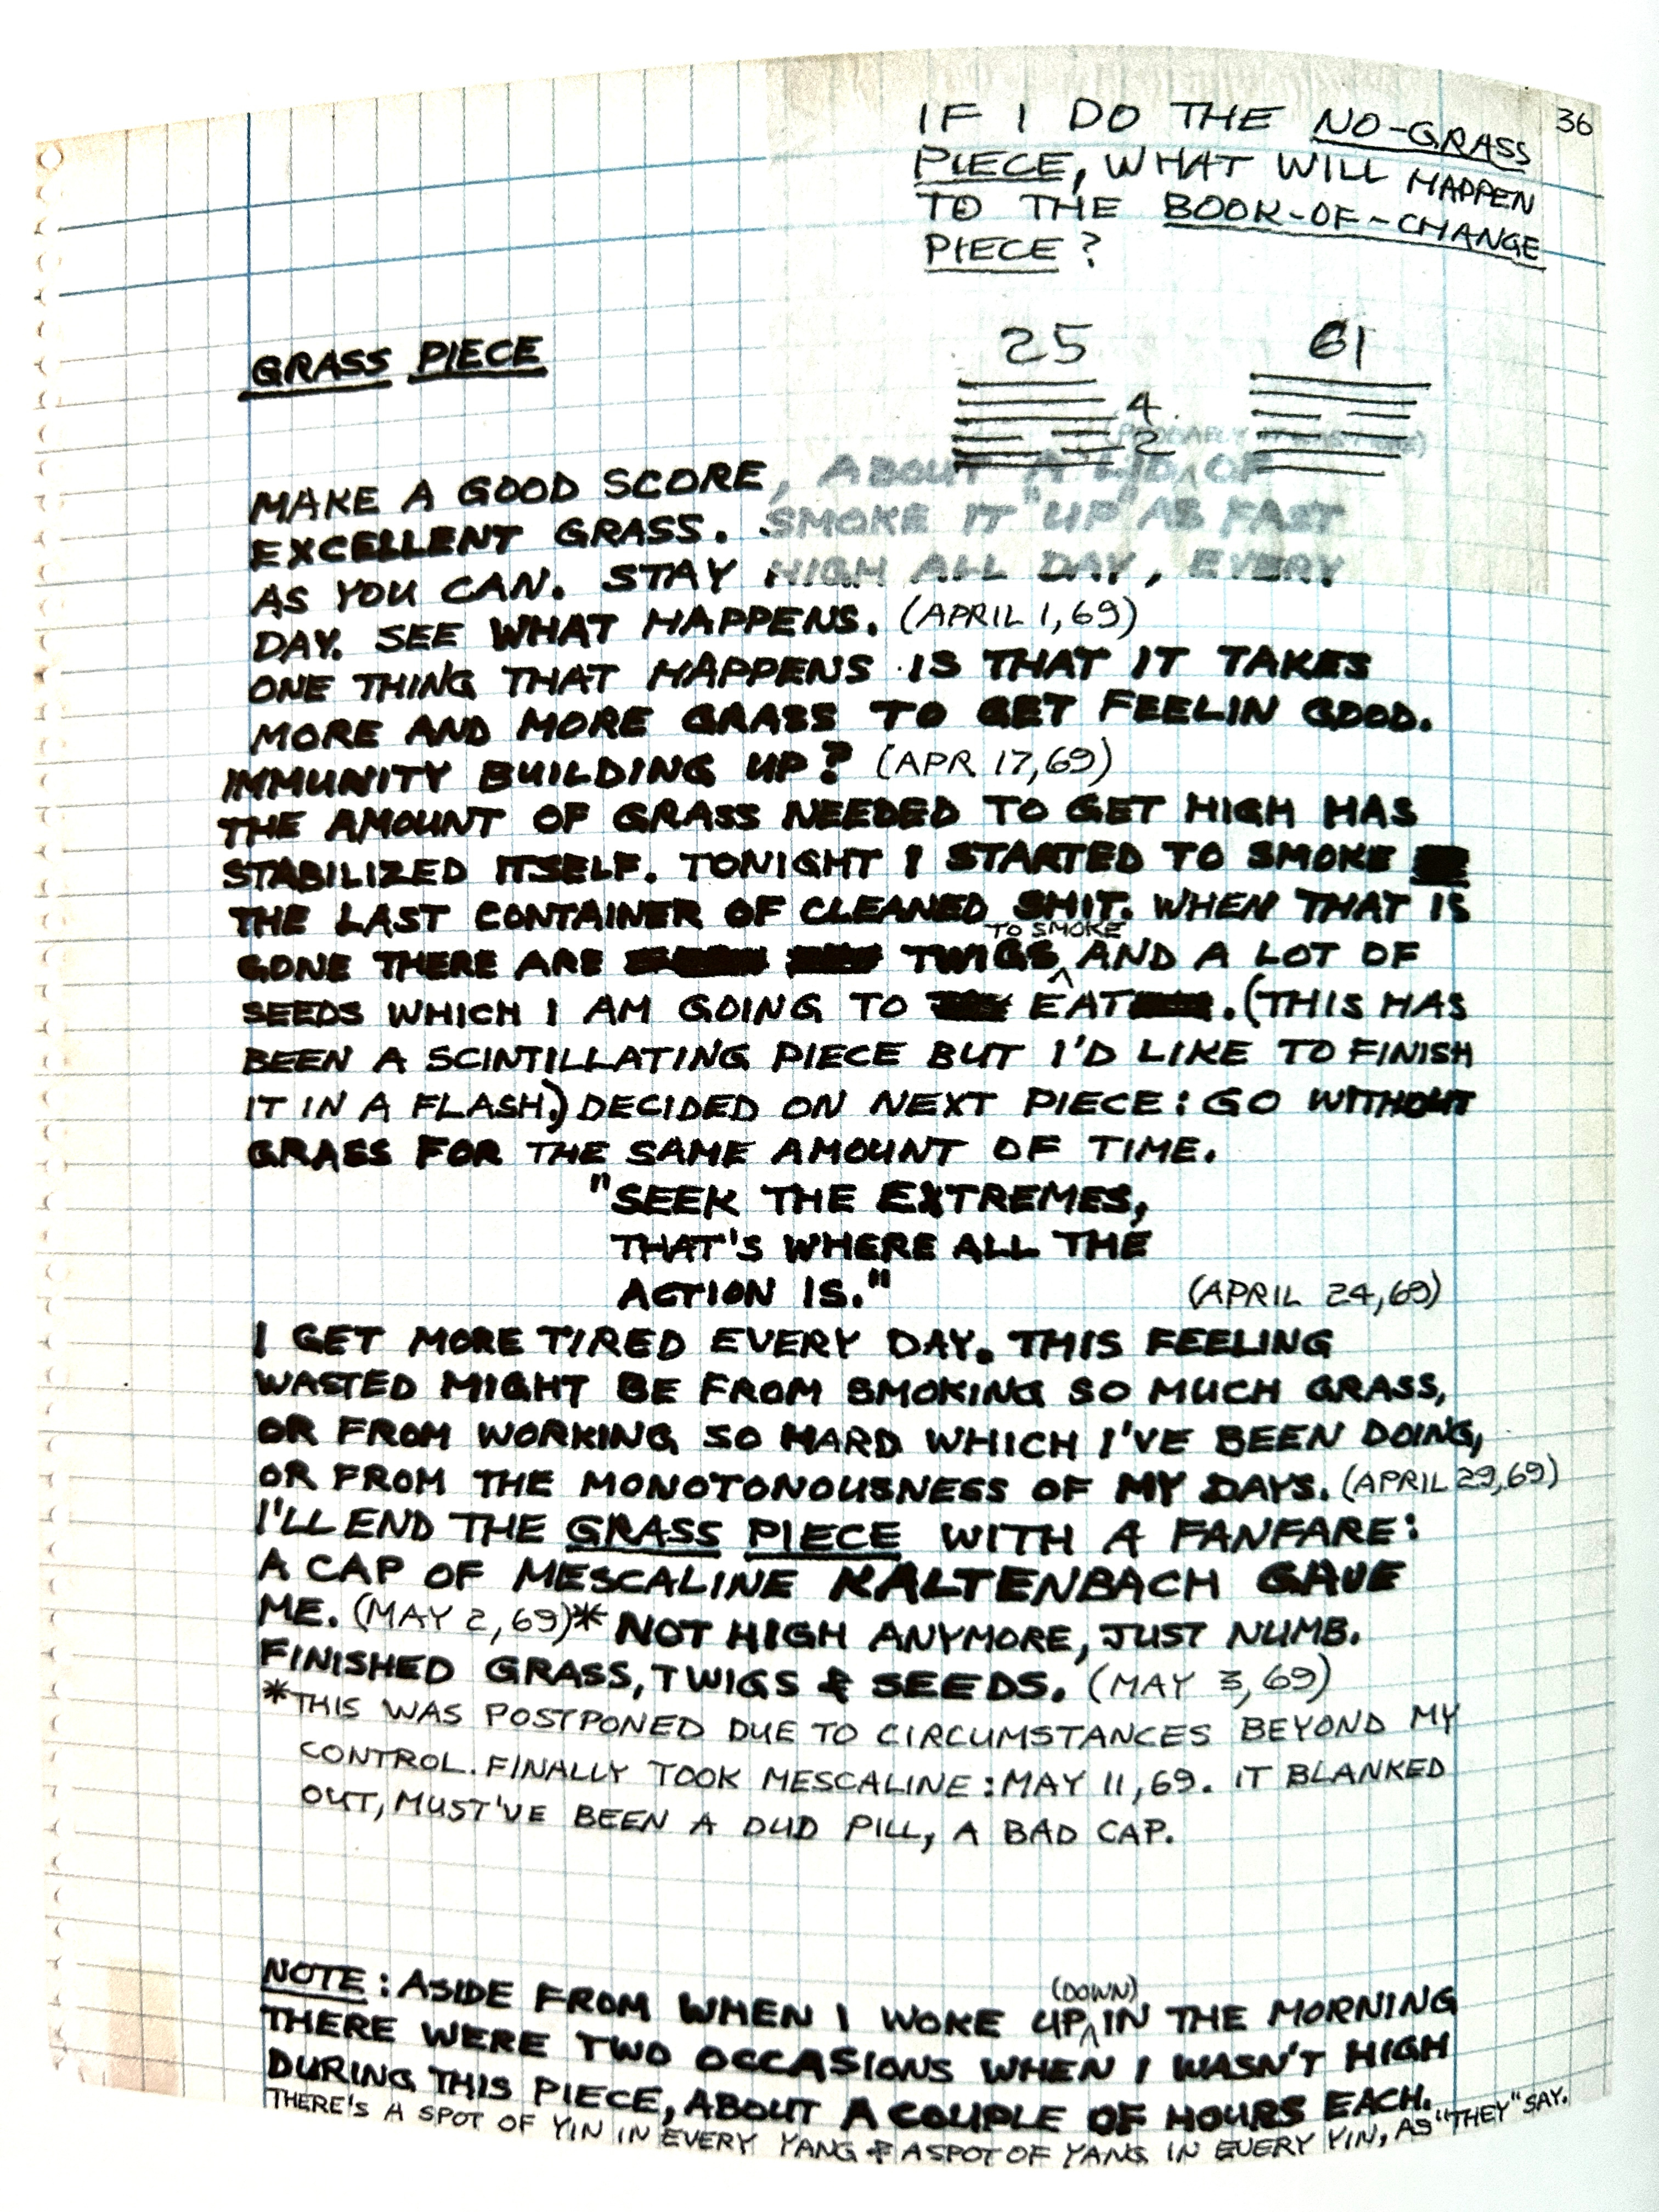 36
IF I DO THE NO-GRASS
PIECE, WHAT WILL HAPPEN
TO THE BOOK-OF-CHANGE
PIECE?
25 61
4
2
GRASS PIECE
MAKE A GOOD SCORE, ABOUT A LID OF
EXCELLENT GRASS. SMOKE IT "UP" AS FAST
AS YOU CAN. STAY HIGH ALL DAY, EVERY
DAY. SEE WHAT HAPPENS. (APRIL 1,69)
ONE THING THAT HAPPENS IS THAT IT TAKES
MORE AND MORE GRASS TO GET FEELIN GOOD.
IMMUNITY BUILDING UP? (APR 17,69)
THE AMOUNT OF GRASS NEEDED TO GET HIGH HAS
STABILIZED ITSELF. TONIGHT I STARTED TO SMOKE
THE LAST CONTAINER OF CLEANED SHIT. WHEN THAT IS
TO SMOKE
GONE THERE ARE TWIGS AND A LOT OF
SEEDS WHICH I AM GOING TO EAT. (THIS HAS
BEEN A SCINTILLATING PIECE BUT I'D LIKE TO FINISH
IT IN A FLASH.) DECIDED ON NEXT PIECE: GO WITHOUT
GRASS FOR THE SAME AMOUNT OF TIME.
"SEEK THE EXTREMES,
THAT'S WHERE ALL THE
ACTION IS." (APRIL 24,69)
I GET MORE TIRED EVERY DAY. THIS FEELING
WASTED MIGHT BE FROM SMOKING SO MUCH GRASS,
OR FROM WORKING SO HARD WHICH I'VE BEEN DOING,
OR FROM THE MONOTONOUSNESS OF MY DAYS. (APRIL 29,69)
I'LL END THE GRASS PIECE WITH A FANFARE:
A CAP OF MESCALINE KALTENBACH GAVE
ME. (MAY 2,69)* NOT HIGH ANYMORE, JUST NUMB.
FINISHED GRASS, TWIGS & SEEDS. (MAY 3,69)
*THIS WAS POSTPONED DUE TO CIRCUMSTANCES BEYOND MY
CONTROL. FINALLY TOOK MESCALINE: MAY 11,69. IT BLANKED
OUT, MUST'VE BEEN A DUD PILL, A BAD CAP.
(DOWN)
NOTE: ASIDE FROM WHEN I WOKE UP IN THE MORNING
THERE WERE TWO OCCASIONS WHEN I WASN'T HIGH
DURING THIS PIECE, ABOUT A COUPLE OF HOURS EACH.
THERE'S A SPOT OF YIN IN EVERY YANG & A SPOT OF YANG IN EVERY YIN, AS "THEY" SAY.